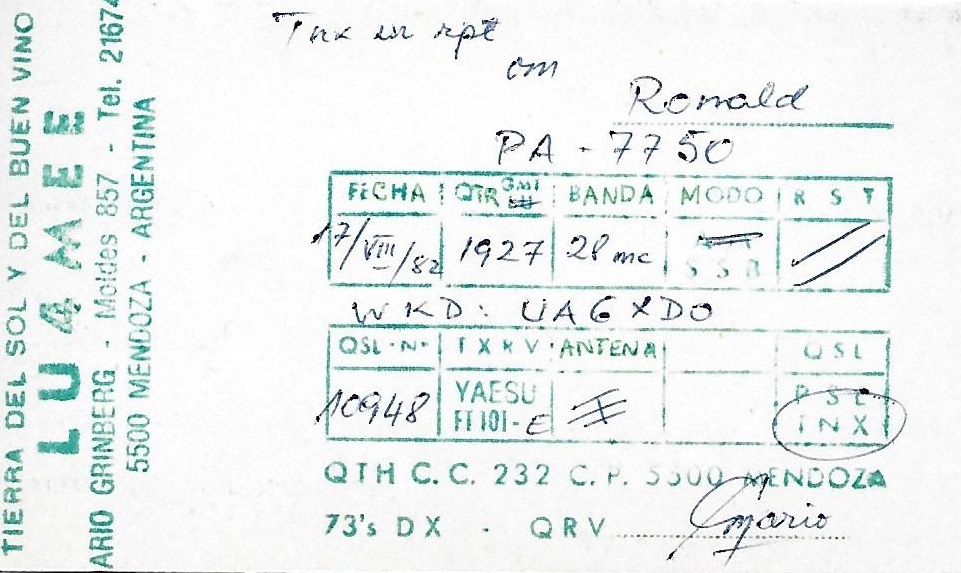 TIERRA DEL SOL Y DEL BUEN VINO
LU4MEE
ARIO GRINBERG - Moldes 857 - Tel. 21674
5500 MENDOZA - ARGENTINA
Tnx ur rpt
om
Ronald
PA - 7750
FECHA QTR GMT BANDA MODO R S T
17/VIII/82 1927 28 mc SSB
WKD: UA6XDO
QSL-N- TXRV ANTENA QSL
10948 YAESU FT101-E PSE TNX
QTH C.C. 232 C.P. 5500 MENDOZA
73's DX - QRV Mario